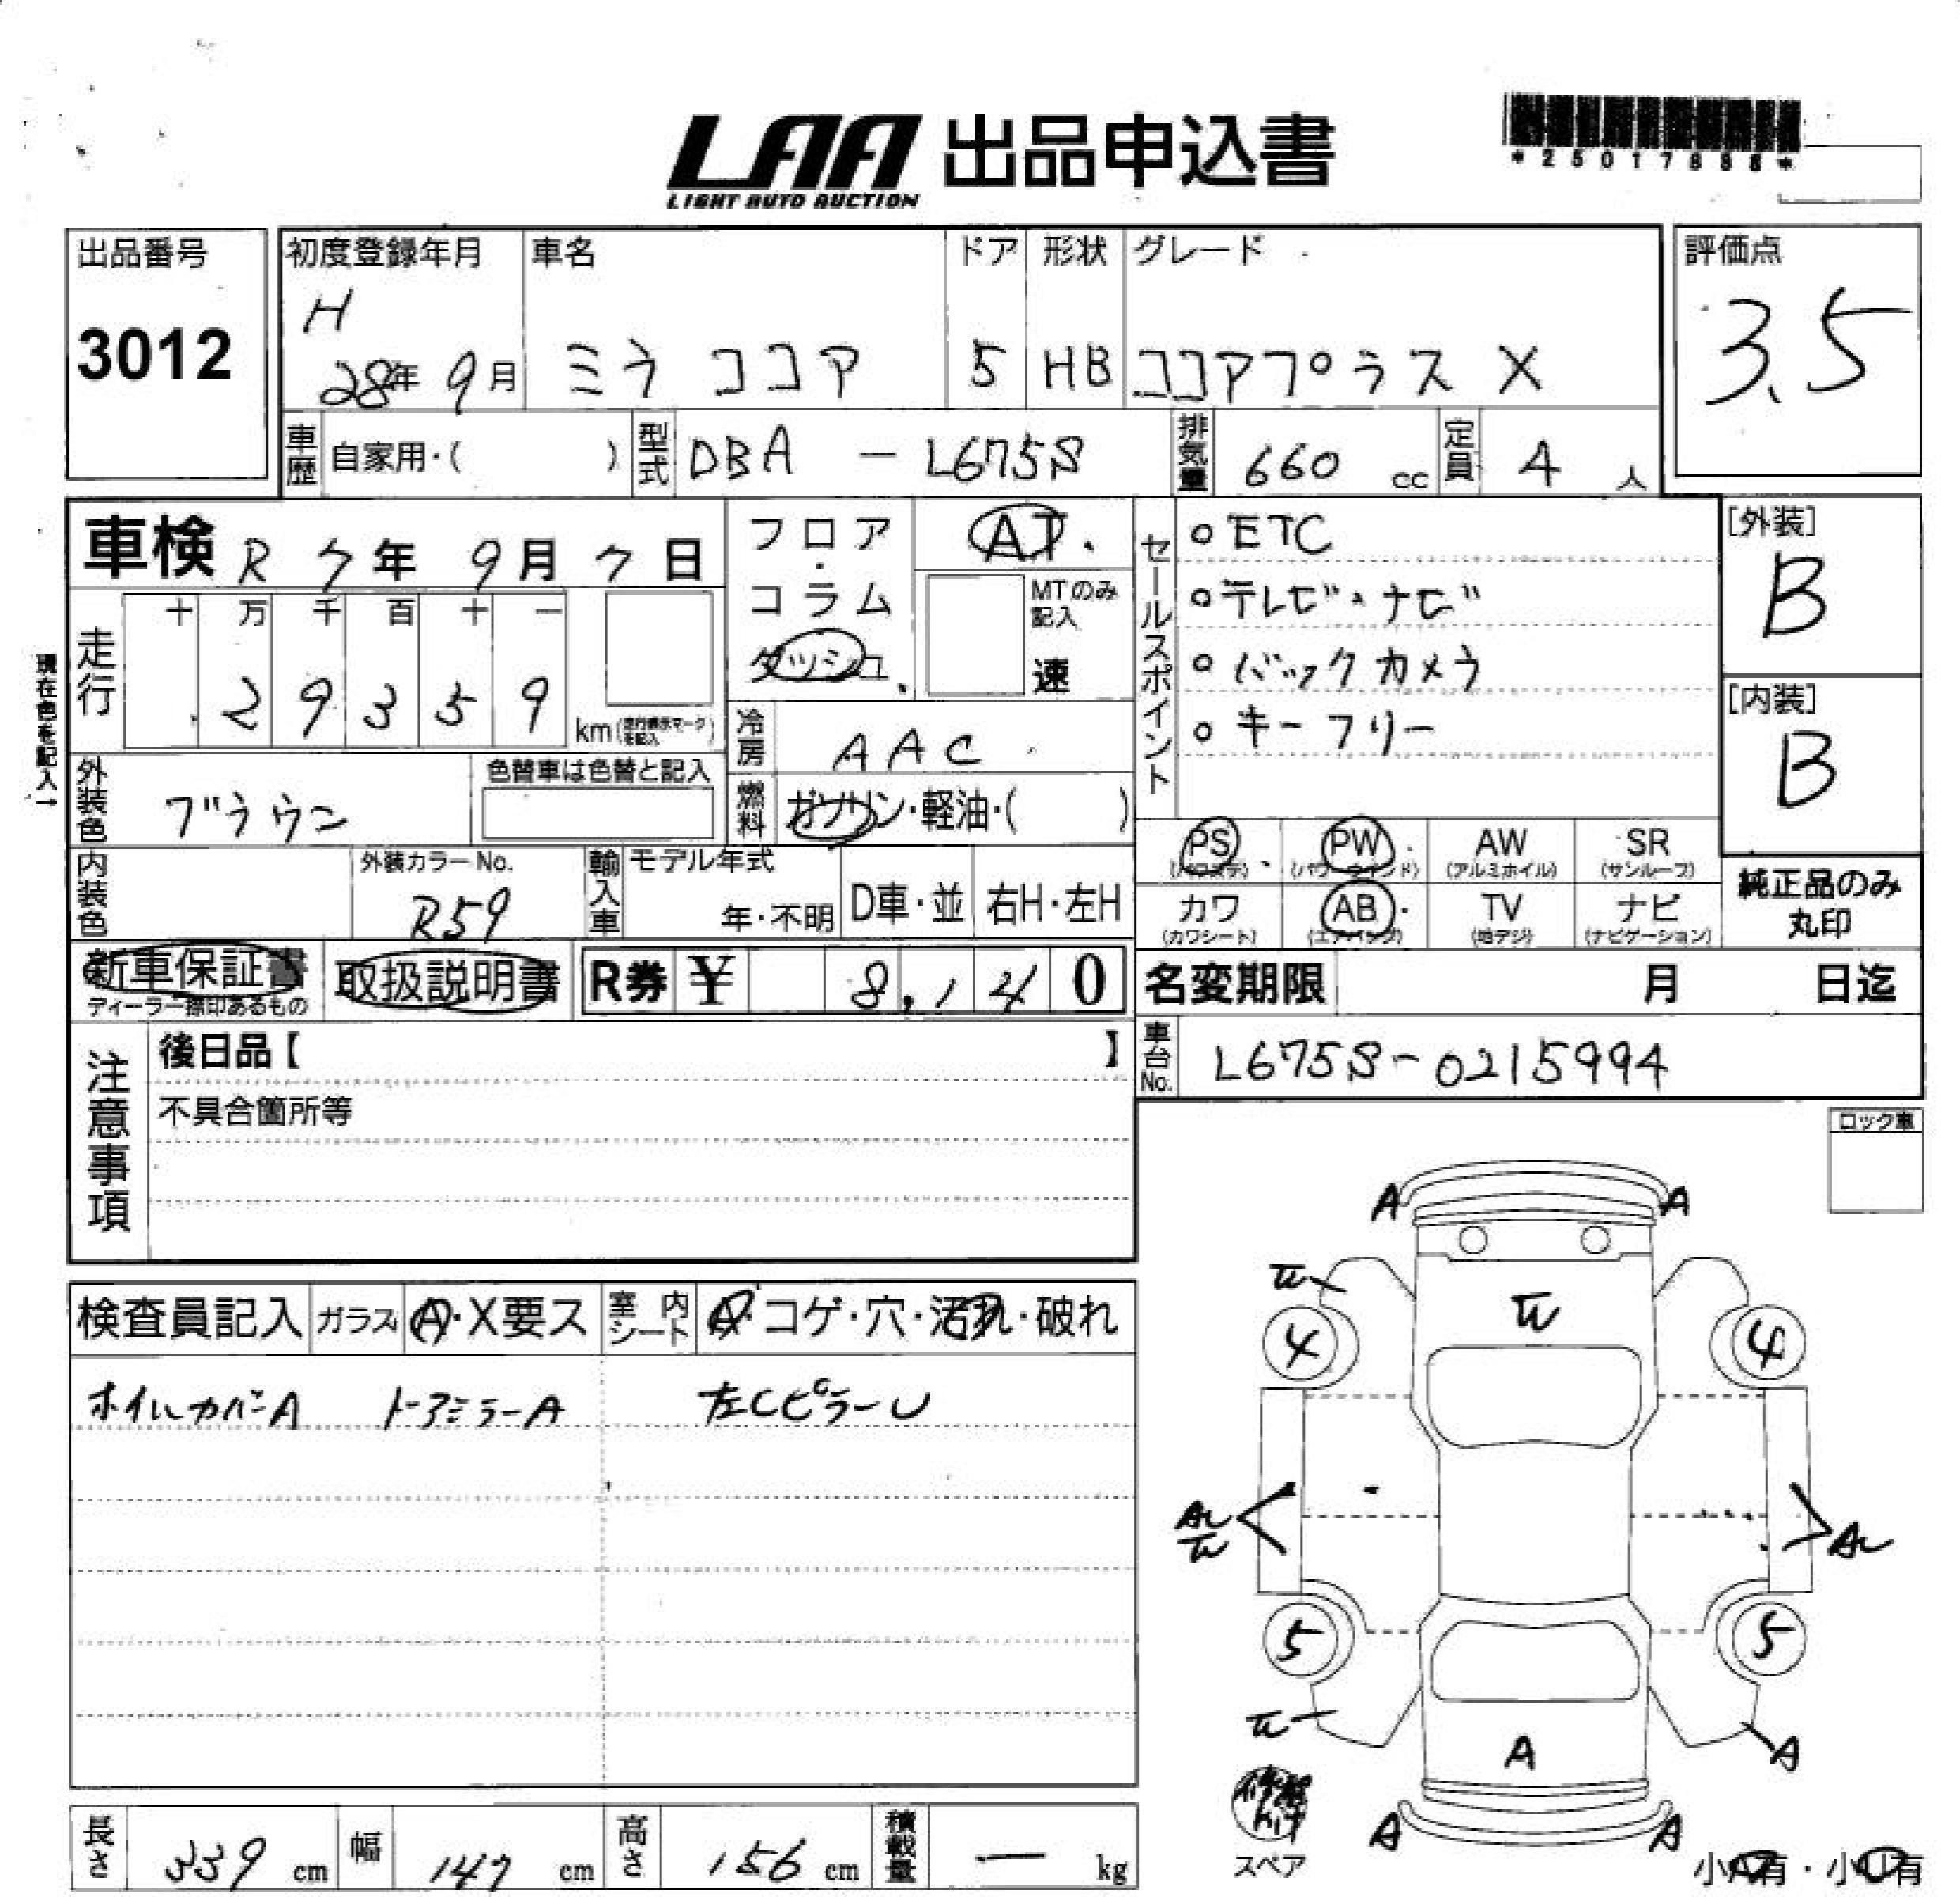 LAA 出品申込書
LIGHT AUTO AUCTION
出品番号
3012
初度登録年月
H
28年 9月
車名
ミラ ココア
ドア
5
形状
HB
グレード
ココアプラス X
評価点
3.5
車歴 自家用・( )
型式 DBA - L675S
排気量 660 cc
定員 4 人
車検 R 7年 9月 7日
フロア・コラム
ダッシュ
AT
MTのみ記入
速
現在色を記入→
走行
十 万 千 百 十 一
2 9 3 5 9
km
冷房 AAC
外装色 ブラウン
色替車は色替と記入
燃料 ガソリン・軽油・( )
内装色
外装カラーNo.
R59
輸入車
モデル年式
年・不明
D車・並
右H・左H
新車保証書
ディーラー捺印あるもの
取扱説明書
R券 ¥ 8,140
セールスポイント
○ETC
○テレビ・ナビ
○バックカメラ
○キーフリー
[外装]
B
[内装]
B
PS
(パワステ)
PW
(パワーウインド)
AW
(アルミホイル)
SR
(サンルーフ)
カワ
(カワシート)
AB
(エアバッグ)
TV
(地デジ)
ナビ
(ナビゲーション)
純正品のみ
丸印
名変期限 月 日迄
車台No. L675S-0215994
注意事項
後日品【 】
不具合箇所等
ロック車
検査員記入
ガラス
A・X要ス
室内シート
A・コゲ・穴・汚れ・破れ
ホイルカバーA ドアミラーA 左CピラーU
A
A
4
4
5
5
A
A
A
A
スペア
小A有・小U有
長さ 339 cm
幅 147 cm
高さ 156 cm
積載量 — kg